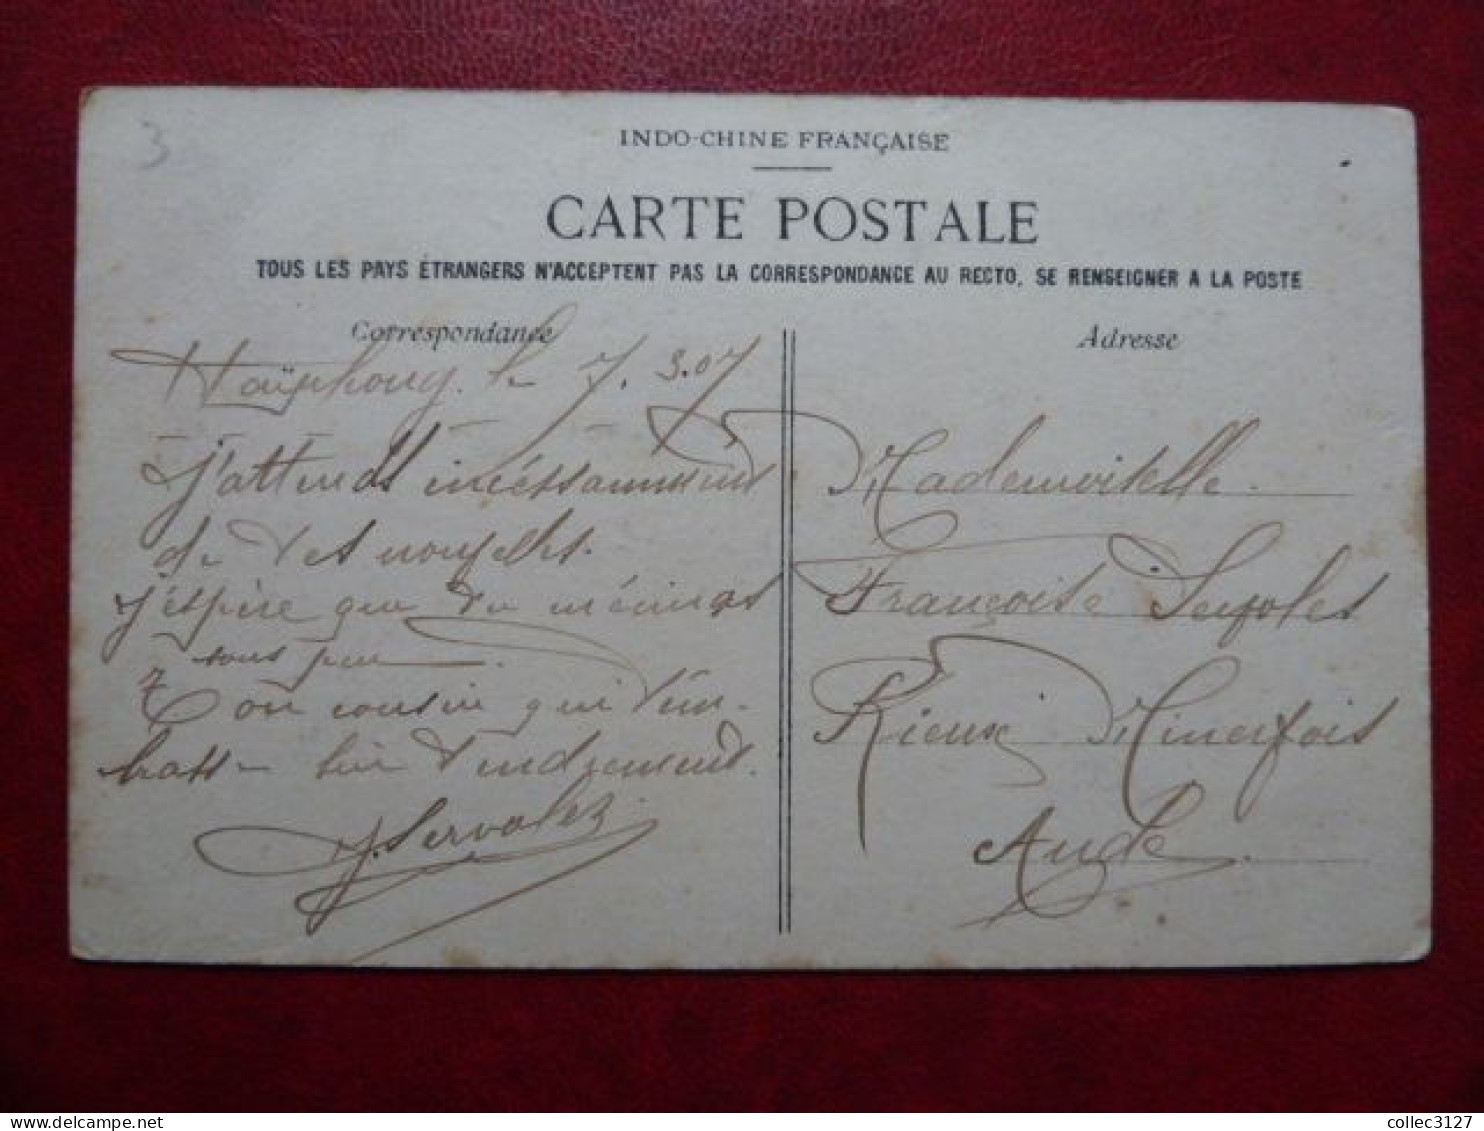 3
INDO-CHINE FRANÇAISE
CARTE POSTALE
TOUS LES PAYS ÉTRANGERS N'ACCEPTENT PAS LA CORRESPONDANCE AU RECTO, SE RENSEIGNER A LA POSTE
Correspondance
Haïphong, le 7.3.07
J'attends incéssamment
de tes nouvelles.
j'espère que tu m'écriras
sous peu.
Ton cousin qui t'em-
brasse bien tendrement.
J. Servolez
Adresse
Mademoiselle
Françoise
Rieux Minervois
Aude
collec3127